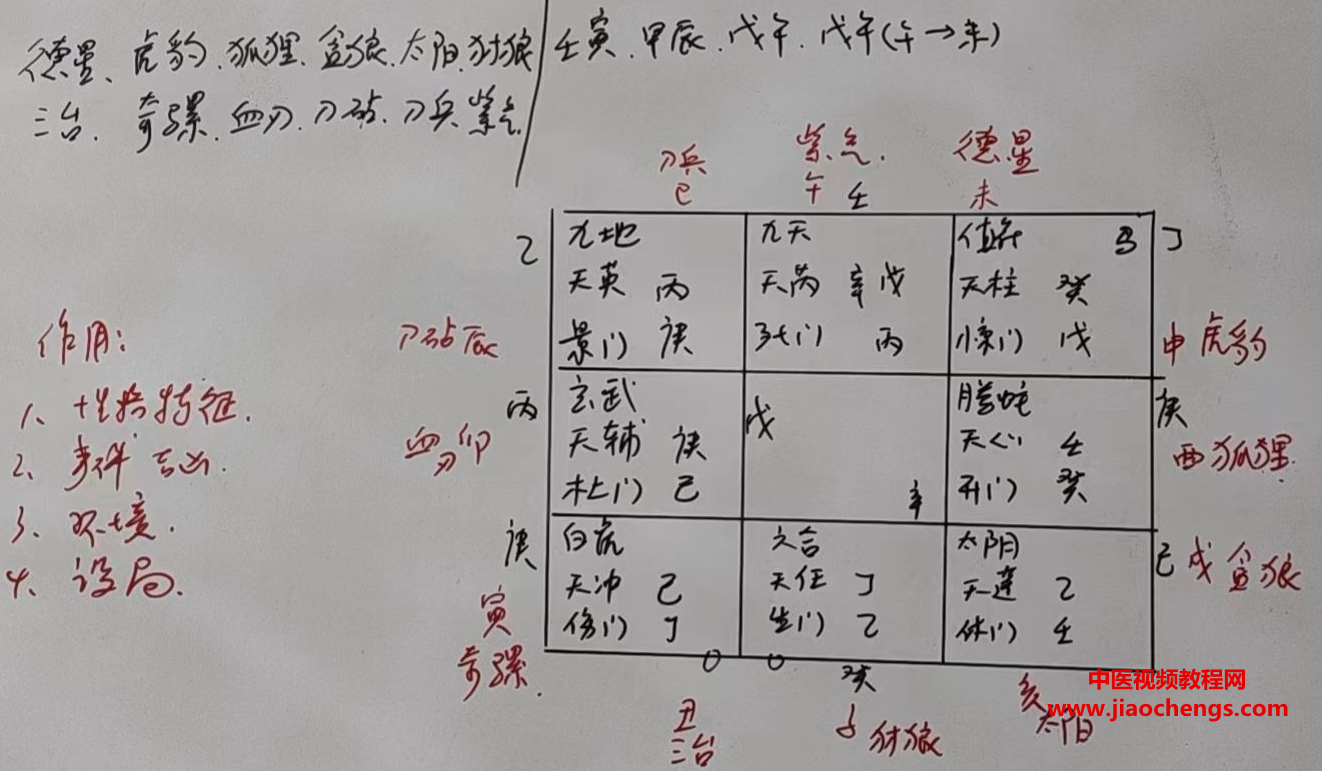 德星、虎豹、狐狸、贪狼、太阳、豺狼 壬寅、甲辰、戊午、戊午(午→未)
三台、奇骡、血刃、刀砧、刀兵、紫气
刀兵 紫气. 德星
巳 午 壬 未
乙 九地 九天 值符 马 丁
天英 丙 天芮 辛戊 天柱 癸
作用: 刀砧辰 景门 庚 死门 丙 惊门 戊 申虎豹
1、性格特征.
丙 玄武 戊 腾蛇 庚
2、事件吉凶. 血刃卯 天辅 庚 天心 壬 酉狐狸
3、环境. 杜门 己 辛 开门 癸
庚 白虎 六合 太阴 己 戌贪狼
4、设局. 天冲 己 天任 丁 天蓬 乙
寅 伤门 丁 生门 乙 休门 壬
奇骡. 0 0 癸
中医视频教程网
www.jiaochengs.com
丑 子豺狼 亥
三台 太阳